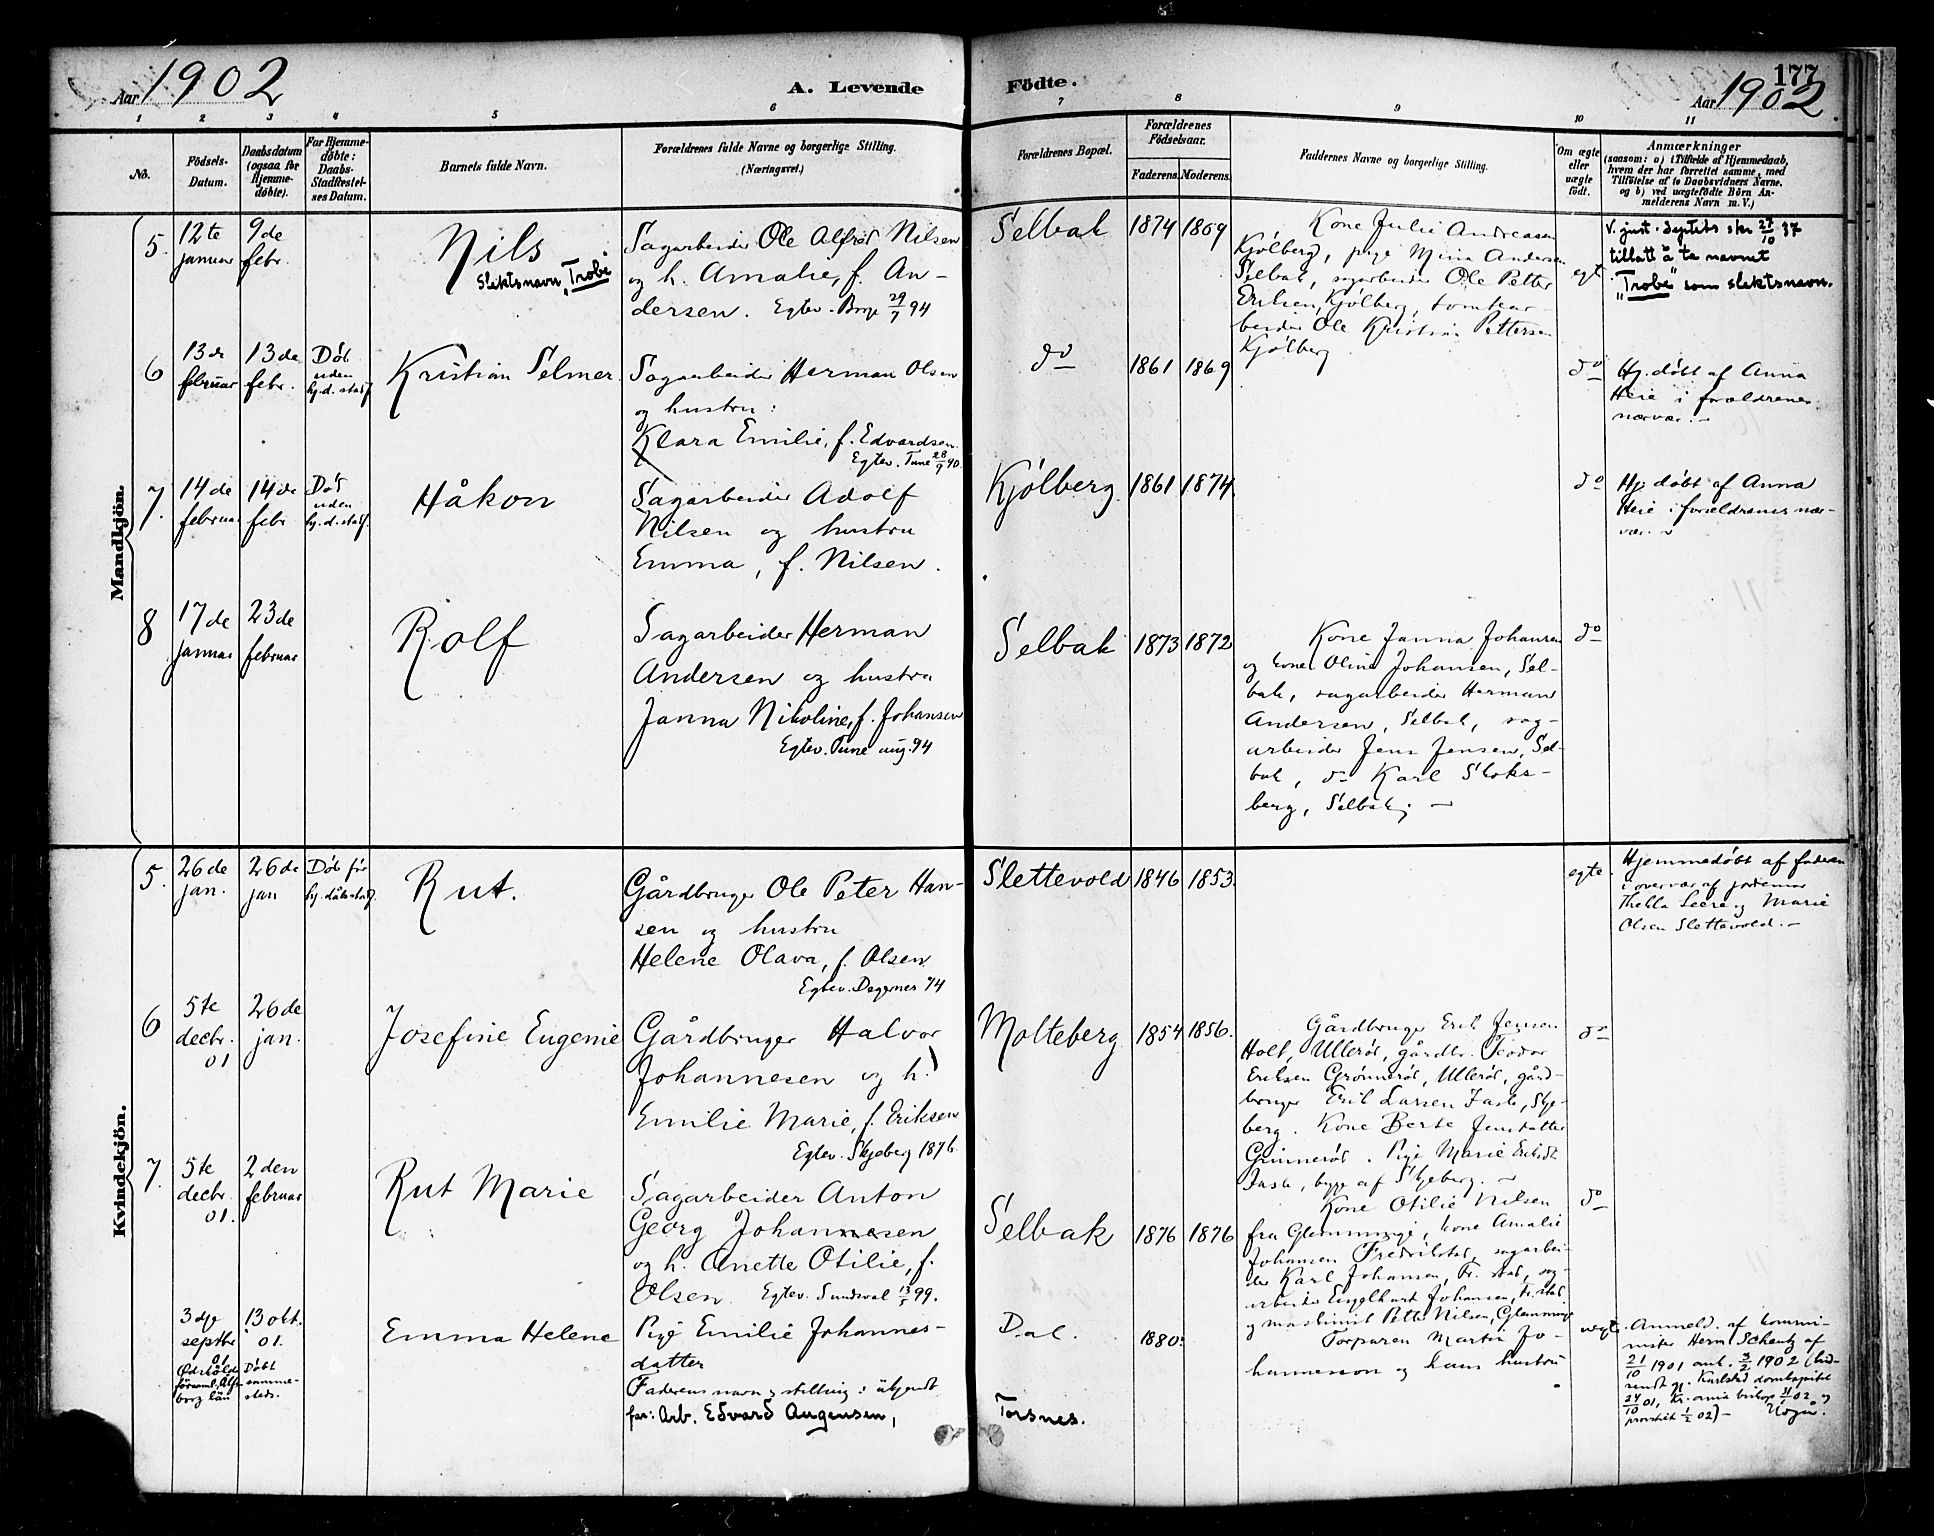 Aar 1902
A. Levende
Födte.
177
Aar 1902
1 2 3 4 5 6 7 8 9 10 11
No.
Födsels-
Datum.
Daabsdatum
(ogsaa for
Hjemme-
döbte).
For Hjemme-
döbte:
Daabs-
Stadfæstel-
ses Datum.
Barnets fulde Navn.
Forældrenes fulde Navne og borgerlige Stilling.
(Næringsvei.)
Forældrenes Bopæl.
Forældrenes
Födselsaar.
Faderens.
Moderens.
Faddernes Navne og borgerlige Stilling.
Om ægte
eller
uægte
födt.
Anmærkninger
(saasom: a) i Tilfælde af Hjemmedaab,
hvem der har forrettet samme, med
Tilföielse af to Daabsvidners Navne,
og b) ved uægtefödte Börn An-
melderens Navn m. V.)
Mandkjön.
5
12te
januar
9de
febr.
Nils
Slektsnavn „Trobe"
Sagarbeider Ole Alfred Nilsen
og h. Amalie, f. An-
dersen. Egtev. Borge 29/7 94
Selbak
1874
1869
Kone Julie Andreasen
Kjølberg, pige Mina Andersen
Selbak, sagarbeider Ole Petter
Eriksen, Kjølberg, tomtear-
beider Ole Kristian Pettersen
Kjølberg
egt.
V. just. deptets skr 27/10 37
tillatt å ta navnet
„Trobe" som slektsnavn.
6
13de
februar
13de
febr.
Død
uden
hj.d. stadf.
Kristian Selmer
Sagarbeider Herman Olsen
og hustru:
Klara Emilie, f. Edvardsen
Egtev. Tune 28/9 90.
do
1861
1869
do
Hj. døbt af Anna
Heie i forældrenes
nærvær. -
7.
14de
februar
14de
febr
Død
uden
hj.d. stadf.
Håkon
Sagarbeider Adolf
Nilsen og hustru
Emma, f. Nilsen.
Kjølberg
1861
1874
do
Hj. døbt af Anna
Heie i forældrenes nær-
vær. -
8
17de
januar
23de
februar
Rolf
Sagarbeider Herman
Andersen og hustru
Janna Nikoline, f. Johansen
Egtev. Tune aug. 94
Selbak
1873
1872
Kone Janna Johansen
og kone Oline Johansen, Sel-
bak, sagarbeider Herman
Andersen, Selbak, sag-
arbeider Jens Jensen, Sel-
bak, do Karl Sloks-
berg, Selbak. -
do
Kvindekjön.
5.
26de
jan.
26de
jan
Død før
hj. dåbsstadf.
Rut.
Gårdbruger Ole Peter Han-
sen og hustru
Helene Olava, f. Olsen
Egtev. Degernes 74
Slettevold
1846
1853.
egte.
Hjemmedøbt af faderen
i overvær af jordemor
Thella Leere og Marie
Olsen Slettevold. -
6
5te
decbr.
01
26de
jan.
Josefine Eugenie
Gårdbruger Halvor
Johannesen og h.
Emilie Marie, f. Eriksen
Egtev. Skjeberg 1876.
Molteberg
1854
1856.
Gårdbruger Erik Jensen
Holt, Ullerød, gårdbr. Teodor
Eriksen Grønnerød, Ullerød, gård-
bruger Erik Larsen Faste, Skje-
berg. Kone Berte Jensdatter
Grinnerød. Pige Marie Eriksd.
Faste, bygg af Skjeberg. -
do
7.
5te
decbr.
01.
2den
februar
Rut Marie
Sagarbeider Anton
Georg Johannesen
og h. Anette Otilie, f.
Olsen. Egtev. Sundsval 13/5 99.
Selbak
1876
1876
Kone Otilie Nilsen
fra Glemminge, kone Amalie
Johansen Fredrikstad, sagarbei-
der Karl Johansen, Fr. stad, sag-
arbeider Engelhart Johansen, Fr. stad
og maskinist Petter Nilsen, Glemminge
do
3dje
septbr
01
Ödskölds
församl. Älfs-
borg län
13 okt.
01.
Døbt
samme-
steds.
Emma Helene
Pige Emilie Johannes-
datter
Faderens navn og stilling: ukjendt
far: Arb. Edvard Augensen,
Dal.
Torsnes.
1880.
Torparen Martin Jo-
hannesson og hans hustru
uegte.
Anmeld. af kommi-
nister Herm Scheutz af
21/10 1901 ank. 3/2 1902 (ind-
sendt gj. Karlstad domkapitel
24/10 01, Kr.ania biskop 31/1 02 og
provstiet 1/2 02) -